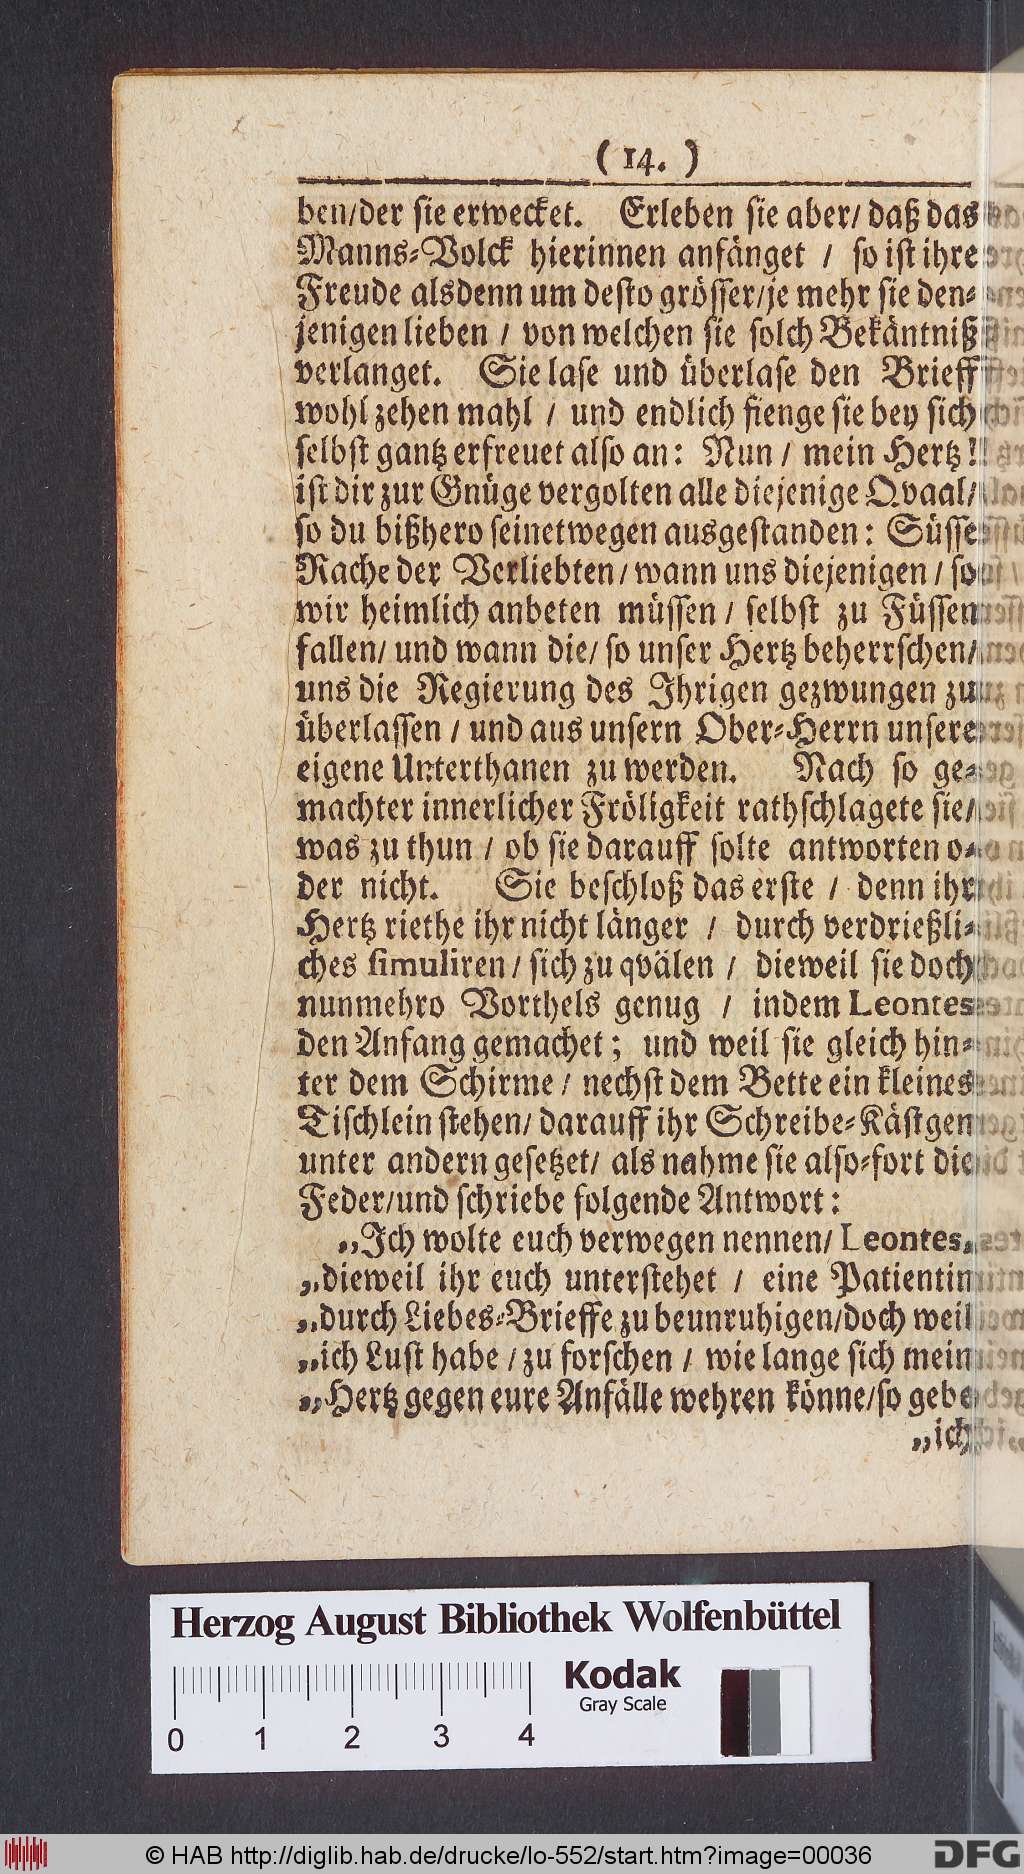 ( 14. )
ben/der sie erwecket. Erleben sie aber/ daß das
Manns-Volck hierinnen anfänget / so ist ihre
Freude alsdenn um desto grösser/je mehr sie den-
jenigen lieben / von welchen sie solch Bekäntniß
verlanget. Sie lase und überlase den Brieff
wohl zehen mahl / und endlich fienge sie bey sich
selbst gantz erfreuet also an: Nun / mein Hertz!
ist dir zur Gnüge vergolten alle diejenige Qvaal/
so du bißhero seinetwegen ausgestanden: Süsse
Rache der Verliebten/ wann uns diejenigen / so
wir heimlich anbeten müssen / selbst zu Füssen
fallen/ und wann die/ so unser Hertz beherrschen/
uns die Regierung des Ihrigen gezwungen zu
überlassen / und aus unsern Ober-Herrn unsere
eigene Unterthanen zu werden. Nach so ge-
machter innerlicher Fröligkeit rathschlagete sie/
was zu thun / ob sie darauff solte antworten o-
der nicht. Sie beschloß das erste / denn ihr
Hertz riethe ihr nicht länger / durch verdrießli-
ches simuliren / sich zu qvälen / dieweil sie doch
nunmehro Vorthels genug / indem Leontes
den Anfang gemachet; und weil sie gleich hin-
ter dem Schirme / nechst dem Bette ein kleines
Tischlein stehen/ darauff ihr Schreibe-Kästgen
unter andern gesetzet/ als nahme sie also-fort die
Feder/und schriebe folgende Antwort:
„Ich wolte euch verwegen nennen/ Leontes,
„dieweil ihr euch unterstehet / eine Patientin
„durch Liebes-Brieffe zu beunruhigen/doch weil
„ich Lust habe / zu forschen / wie lange sich mein
„Hertz gegen eure Anfälle wehren könne/so gebe
„ich
Herzog August Bibliothek Wolfenbüttel
Kodak
Gray Scale
0 1 2 3 4
© HAB http://diglib.hab.de/drucke/lo-552/start.htm?image=00036
DFG